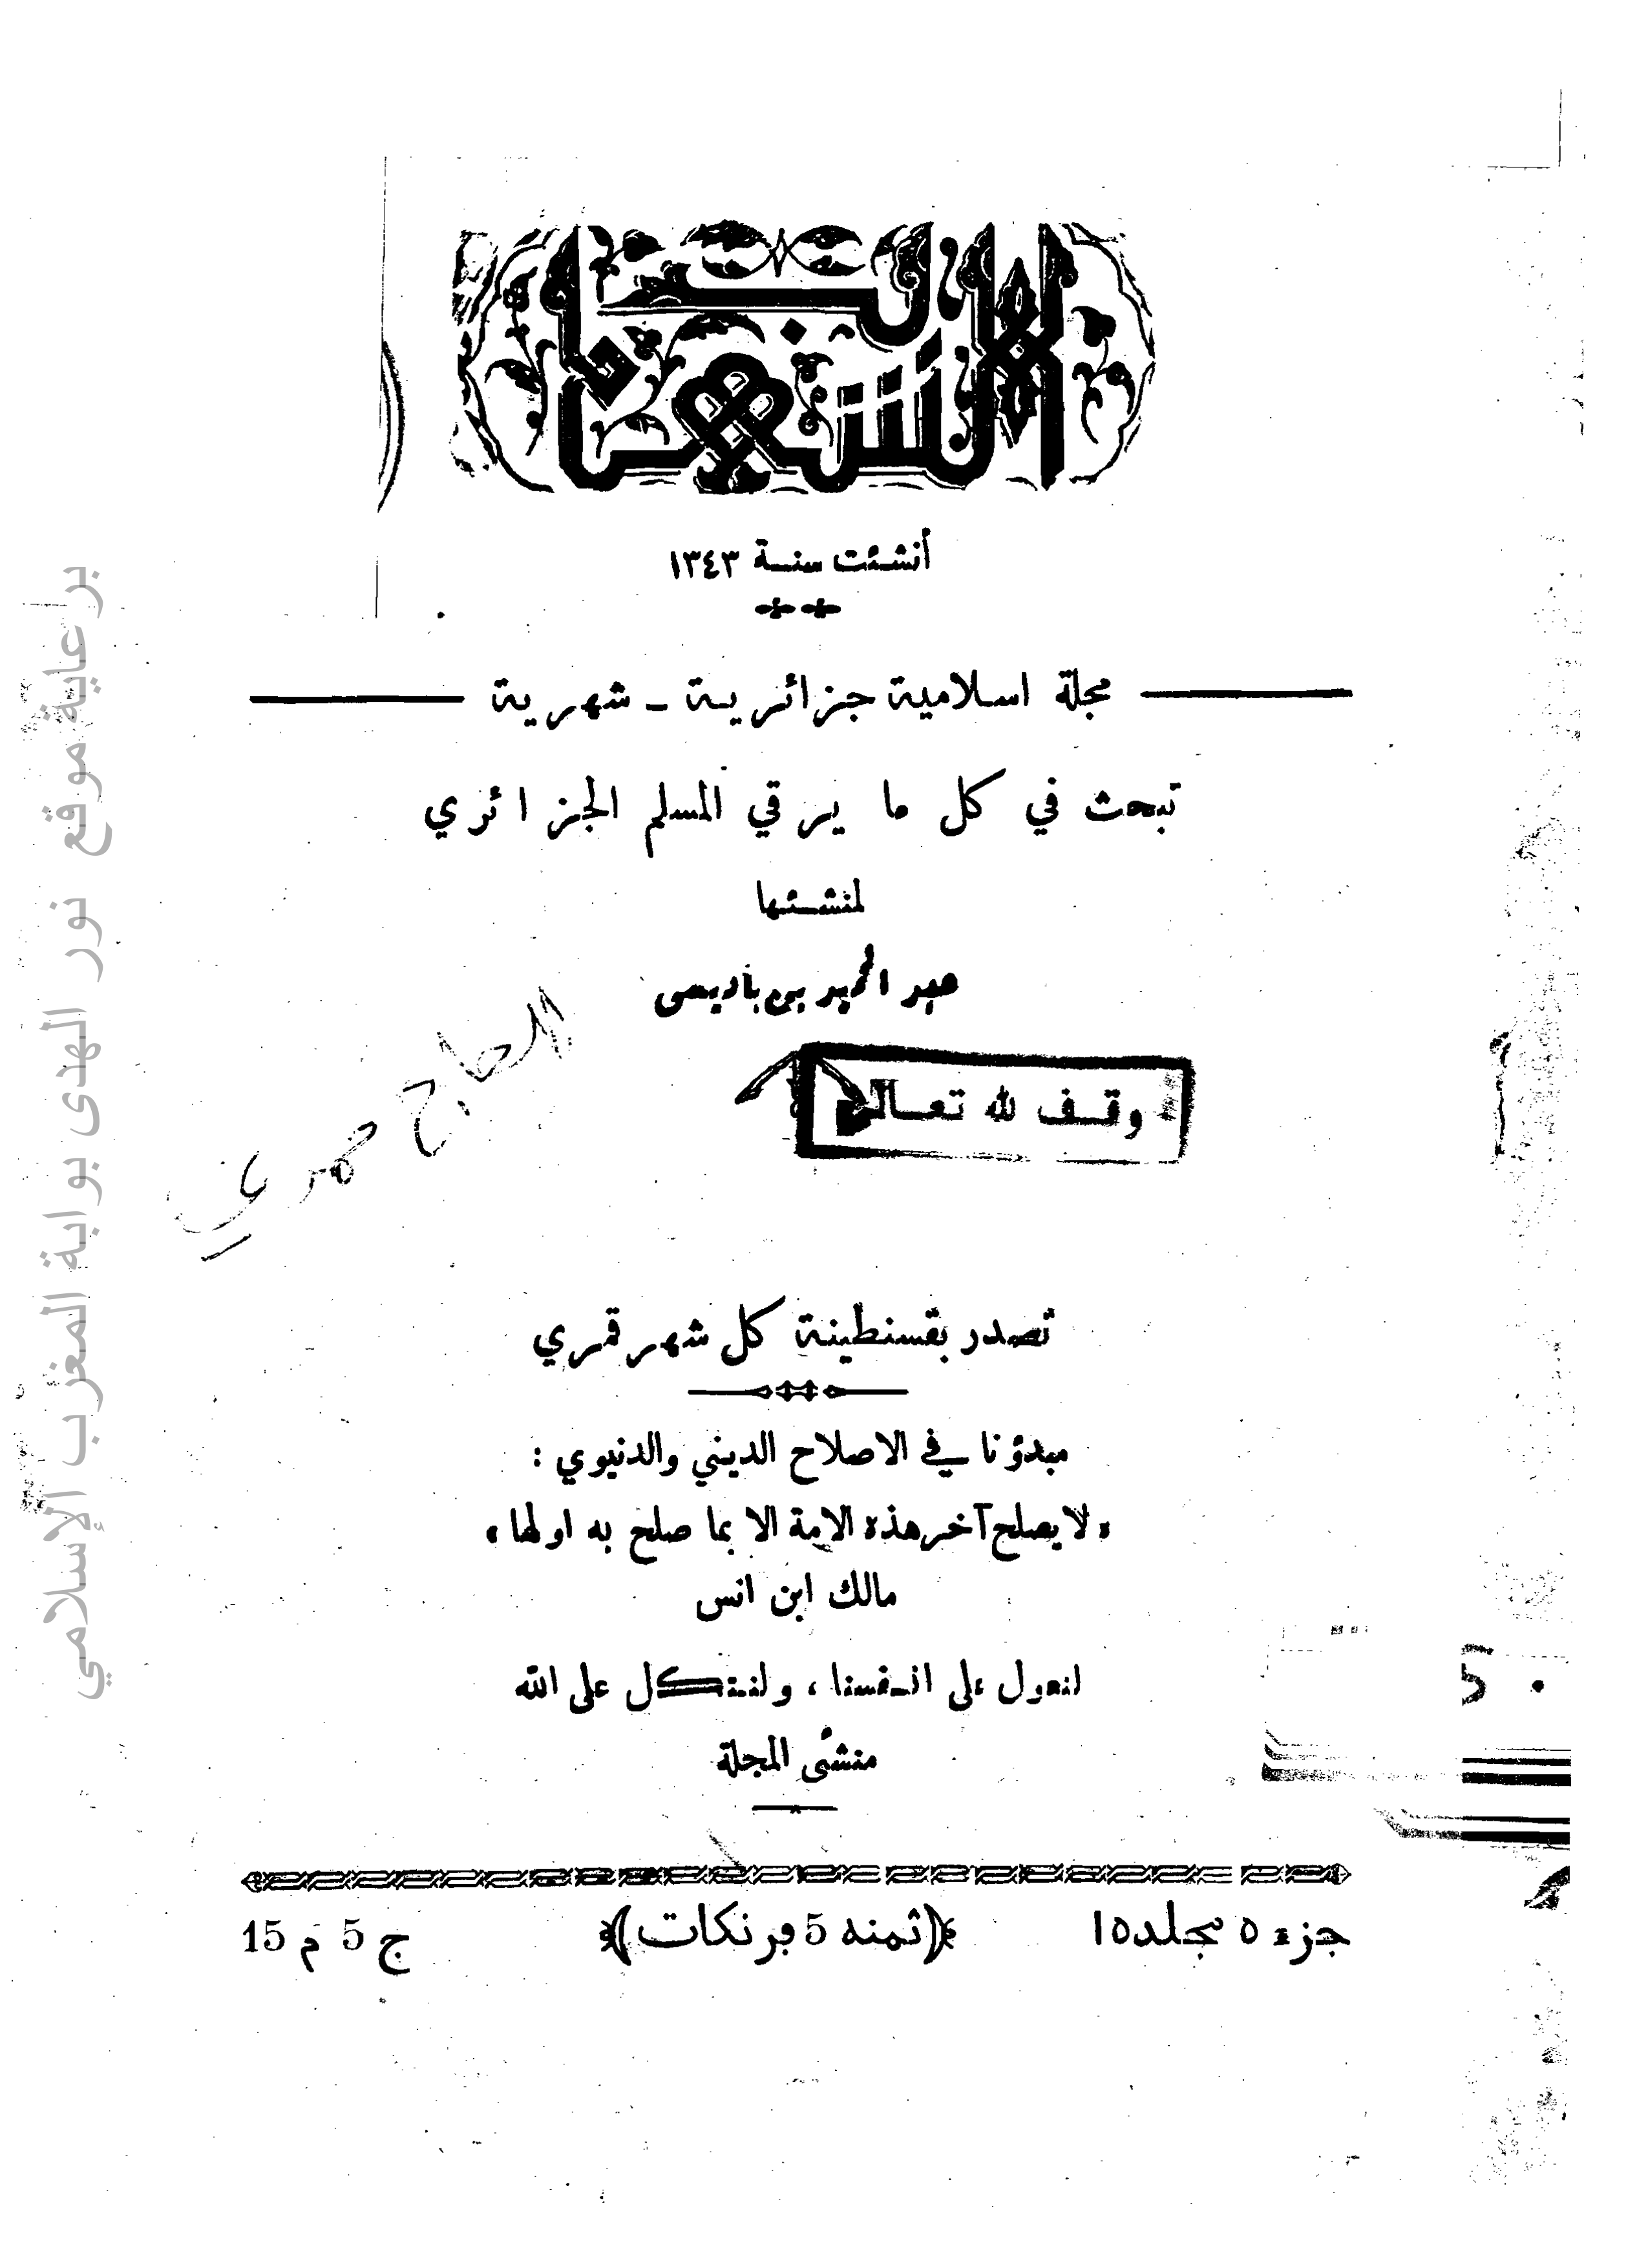 الشهاب
أنشئت سنة ١٣٤٣
مجلة اسلامية جزائرية - شهرية
تبحث في كل ما يرقي المسلم الجزائري
لمنشئها
عبد الحميد بن باديس
وقف لله تعالى
الحاج حمدي
تصدر بقسنطينة كل شهر قمري
مبدؤنا في الاصلاح الديني والدنيوي :
« لا يصلح آخر هذه الامة الا بما صلح به اولها »
مالك ابن انس
لنعول على انفسنا ، ولنتكل على الله
منشئ المجلة
جزء ٥ مجلد ١٥
﴿ ثمنه 5 فرنكات ﴾
ج 5 م 15
برعاية موقع نور الهدى بوابة المغرب الإسلامي